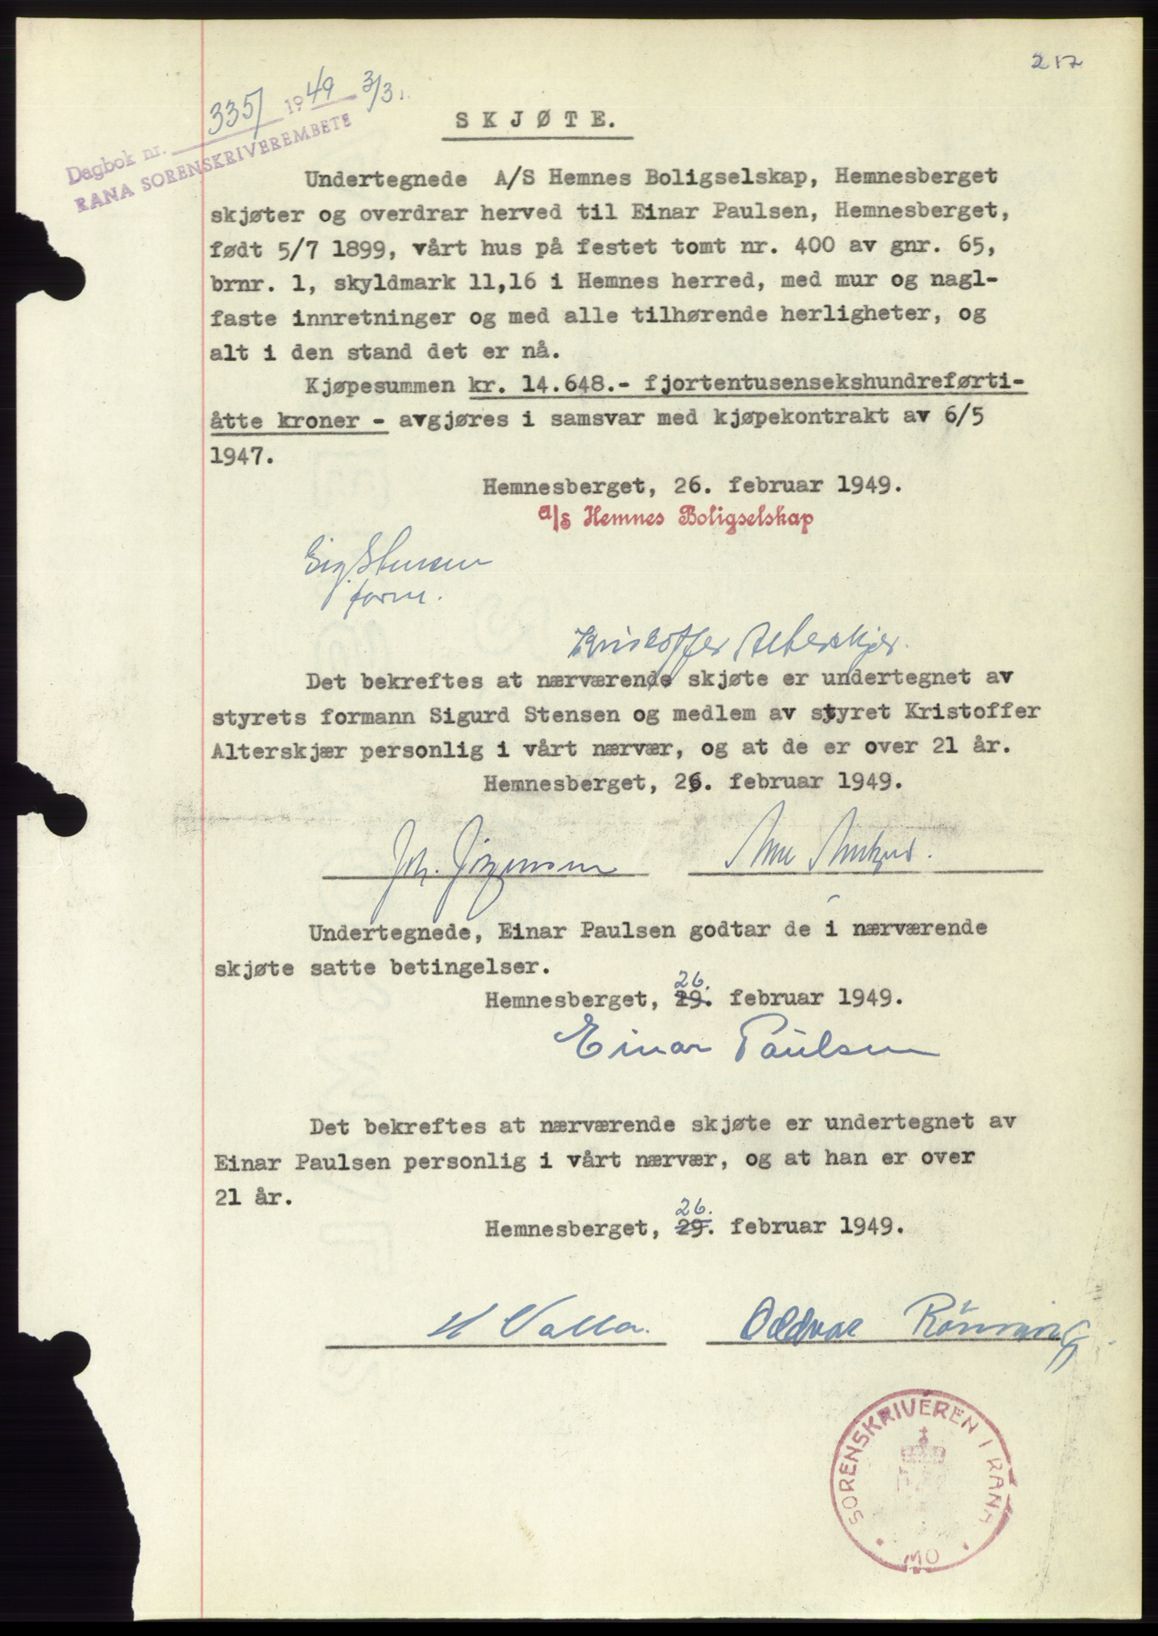 217
Dagbok nr. 335/ 1949 3/3.
RANA SORENSKRIVEREMBETE
SKJØTE.
Undertegnede A/S Hemnes Boligselskap, Hemnesberget
skjøter og overdrar herved til Einar Paulsen, Hemnesberget,
født 5/7 1899, vårt hus på festet tomt nr. 400 av gnr. 65,
brnr. 1, skyldmark 11,16 i Hemnes herred, med mur og nagl-
faste innretninger og med alle tilhørende herligheter, og
alt i den stand det er nå.
Kjøpesummen kr. 14.648.- fjortentusensekshundreførti-
åtte kroner - avgjøres i samsvar med kjøpekontrakt av 6/5
1947.
Hemnesberget, 26. februar 1949.
A/S Hemnes Boligselskap
Sig Stensen
form.
Kristoffer Alterskjær.
Det bekreftes at nærværende skjøte er undertegnet av
styrets formann Sigurd Stensen og medlem av styret Kristoffer
Alterskjær personlig i vårt nærvær, og at de er over 21 år.
Hemnesberget, 26. februar 1949.
Joh. Jörgensen
Undertegnede, Einar Paulsen godtar de i nærværende
skjøte satte betingelser.
26.
Hemnesberget, 29. februar 1949.
Einar Paulsen
Det bekreftes at nærværende skjøte er undertegnet av
Einar Paulsen personlig i vårt nærvær, og at han er over
21 år.
26.
Hemnesberget, 29. februar 1949.
H Valla. Oddvar Rönning
SORENSKRIVEREN I RANA
MO